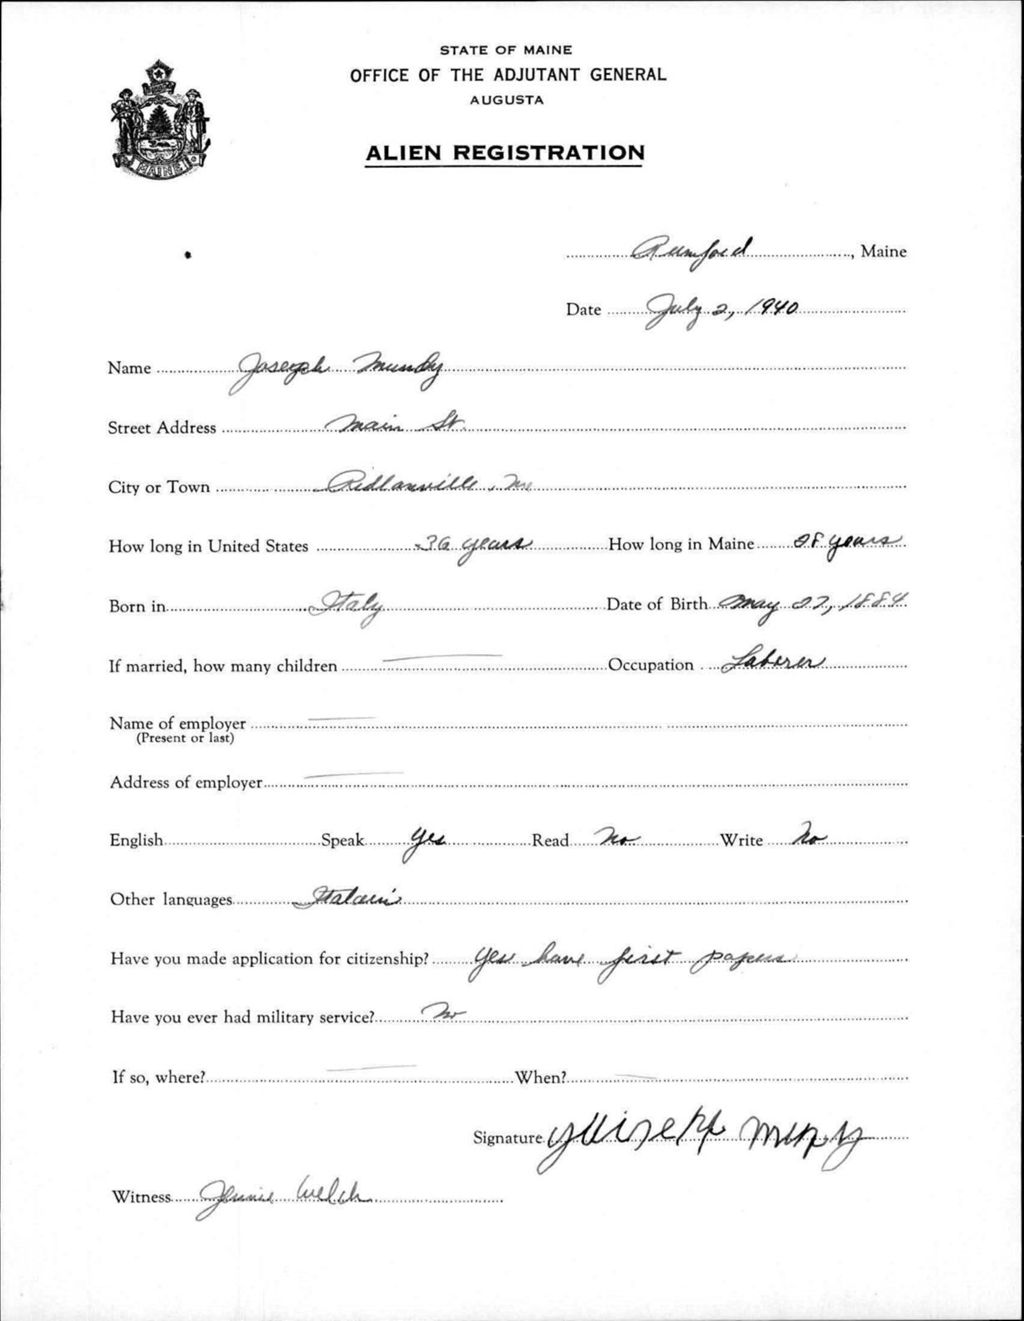 STATE OF MAINE
OFFICE OF THE ADJUTANT GENERAL
AUGUSTA
ALIEN REGISTRATION
MAINE
Rumford, Maine
Date July 2, 1940
Name Joseph Mundy
Street Address Main St.
City or Town Ridlonville, Me
How long in United States 36 years How long in Maine 28 years
Born in Italy Date of Birth May 27, 1884
If married, how many children Occupation Laborer
Name of employer
(Present or last)
Address of employer
English Speak yes Read No Write No
Other languages Italain
Have you made application for citizenship? Yes have first papers
Have you ever had military service? No
If so, where? When?
Signature
Witness Jennie Welch